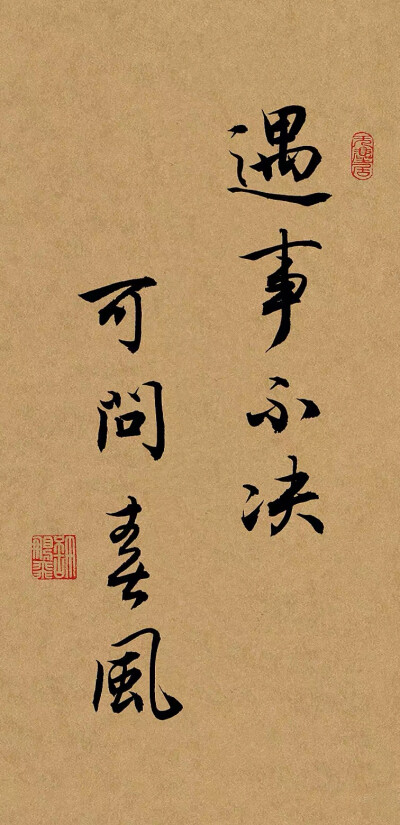 遇事不决
可問春風